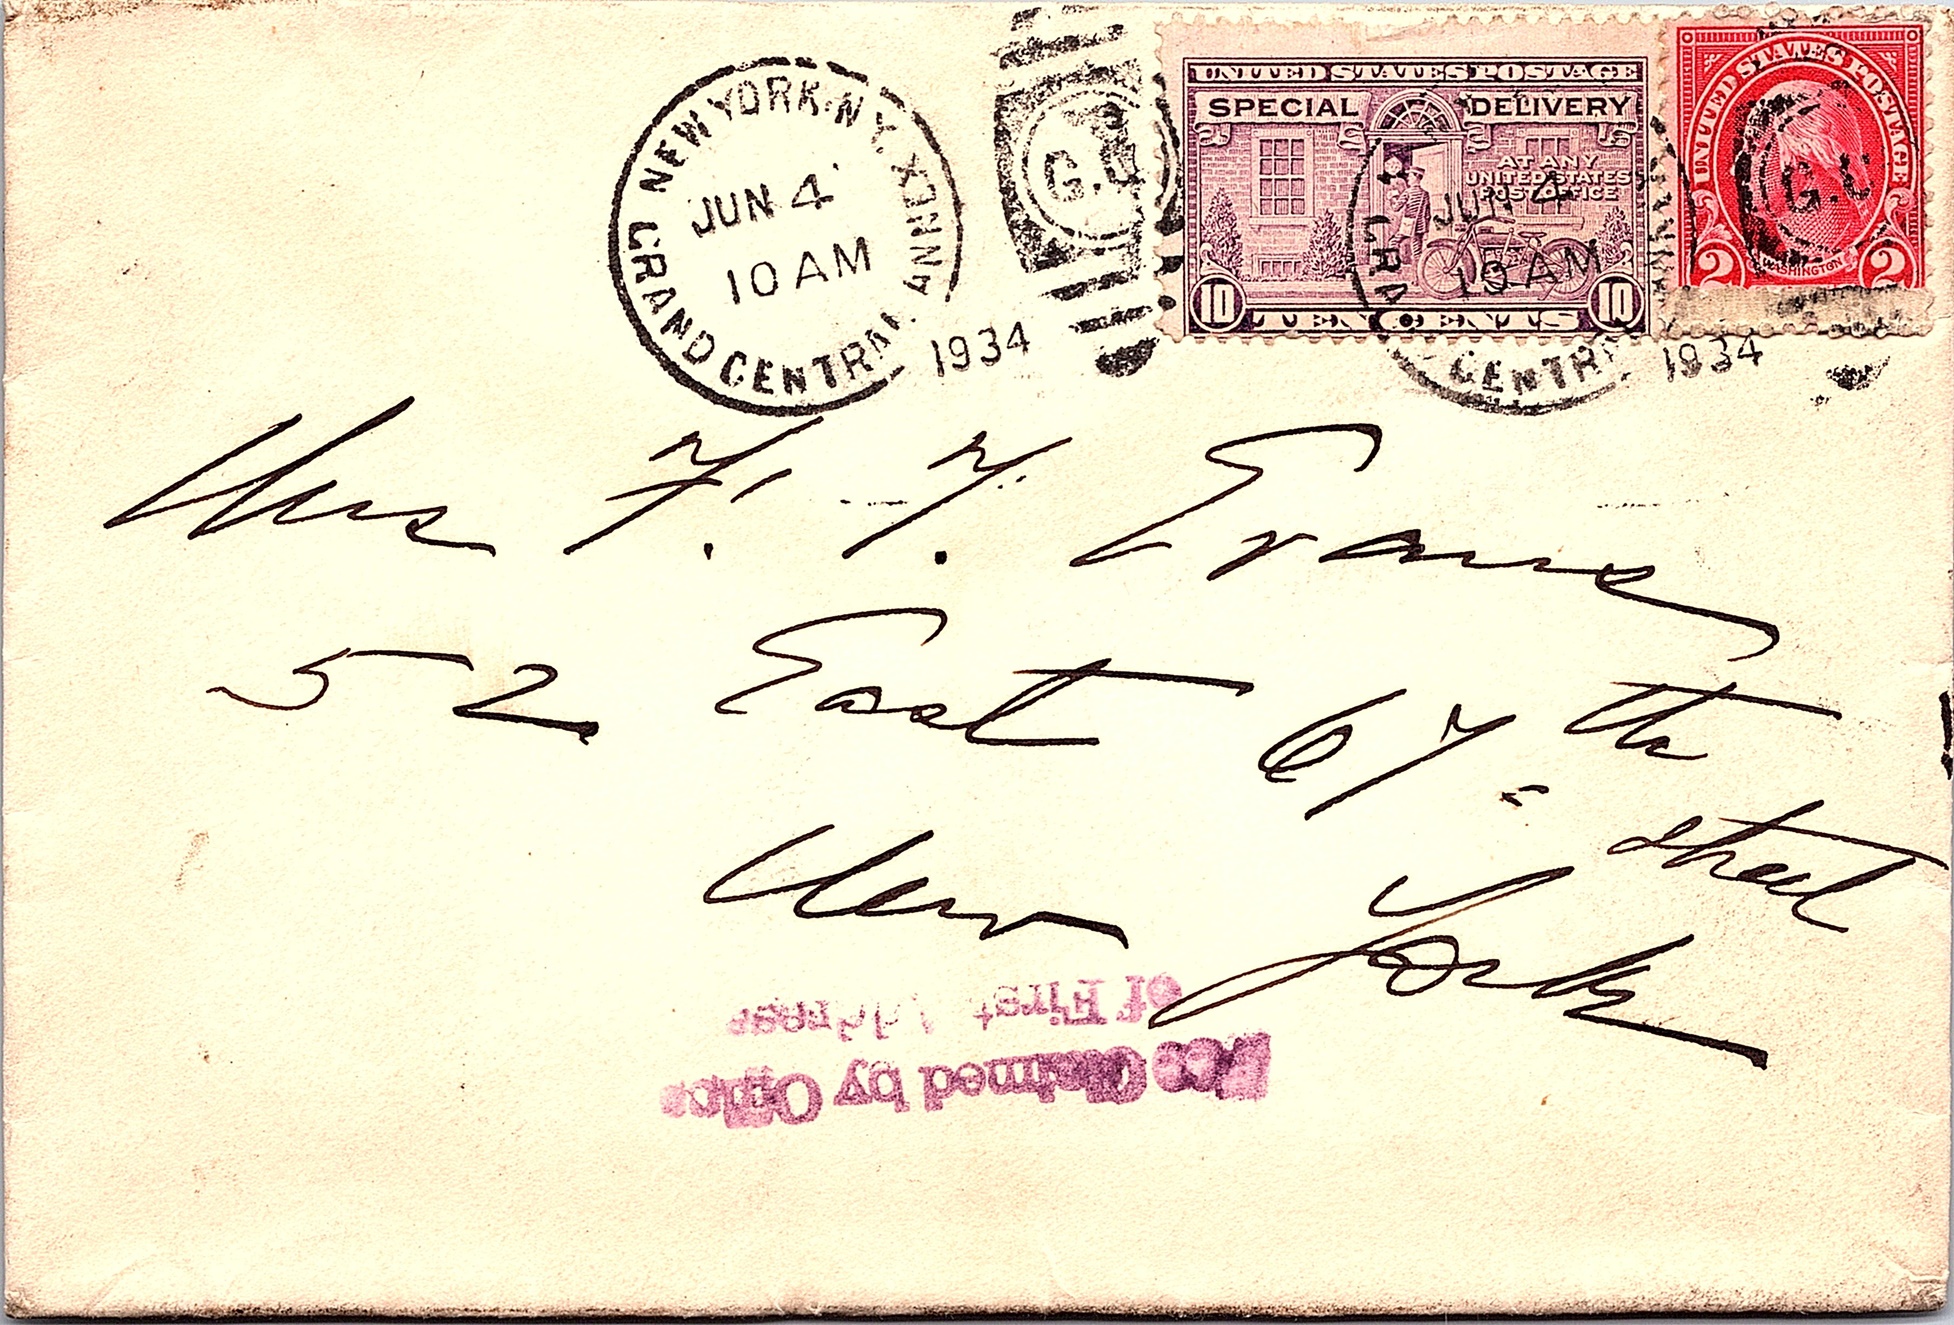 NEW YORK, N.Y. GRAND CENTRAL ANNEX
JUN 4
10 AM
1934
G.C.
UNITED STATES POSTAGE
SPECIAL DELIVERY
AT ANY
UNITED STATES
POST OFFICE
10 TEN CENTS 10
UNITED STATES POSTAGE
WASHINGTON
2 2
JUN 4
10 AM
GRAND CENTRAL ANNEX
1934
Mrs F. T. Evans
52 East 67th
Street
New York
Fee Claimed by Office
of First Address